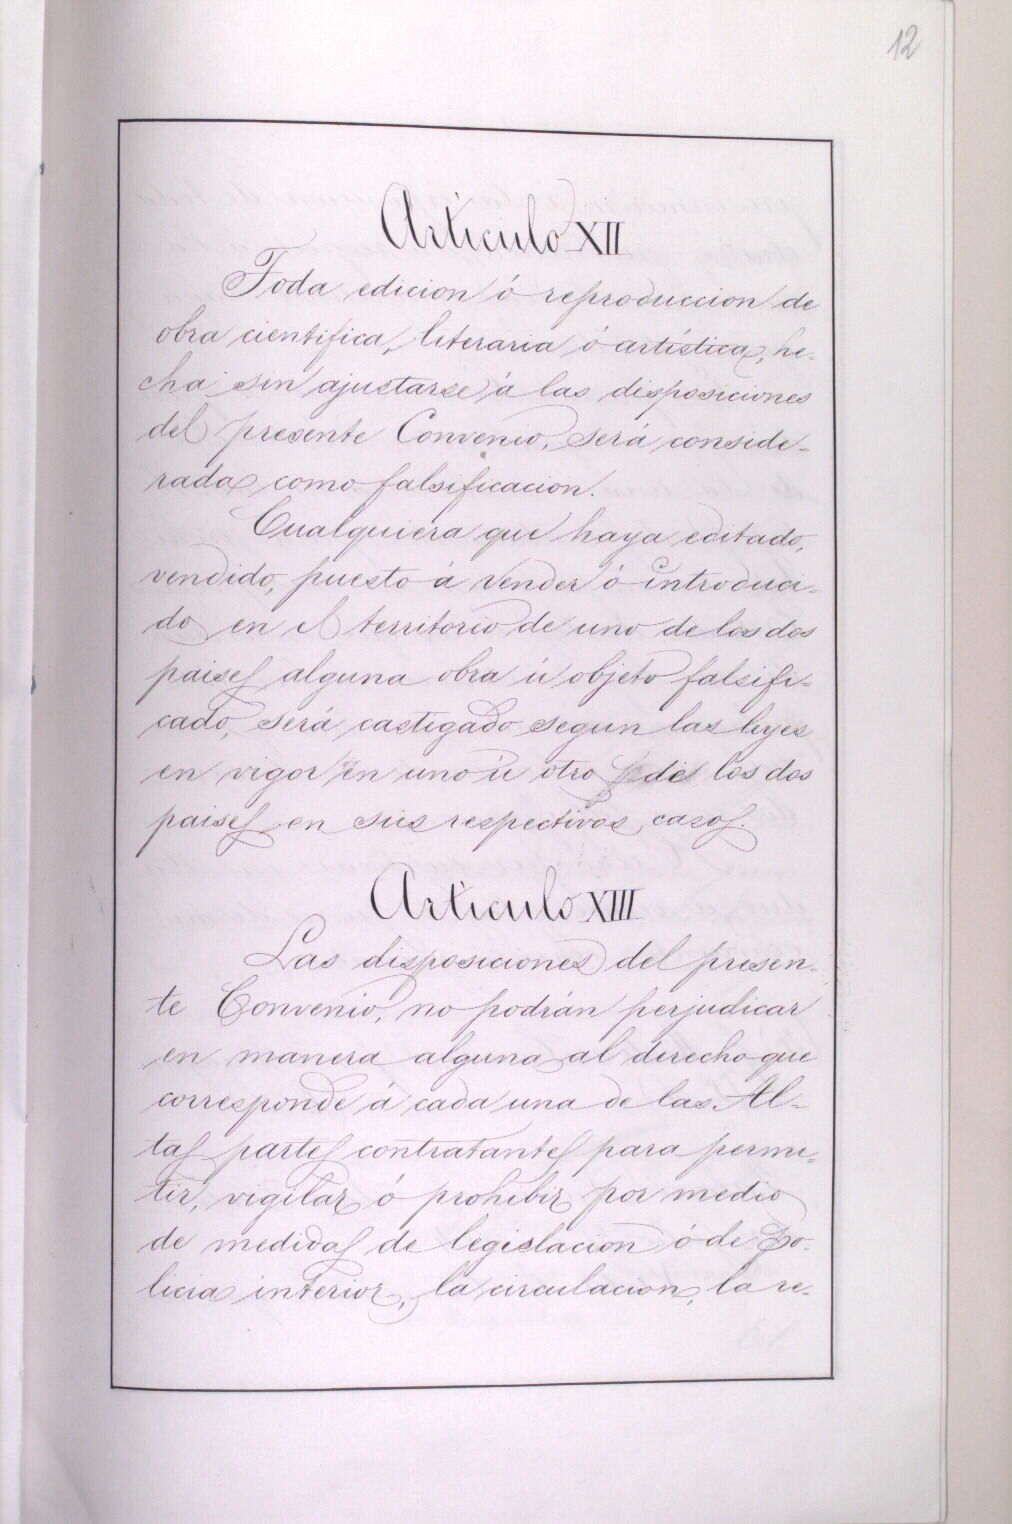 12
Artículo XII
Toda edicion ó reproduccion de
obra científica, literaria ó artística, he-
cha sin ajustarse á las disposiciones
del presente Convenio, será conside-
rada como falsificacion.
Cualquiera que haya editado,
vendido, puesto á vender ó introduci-
do en el territorio de uno de los dos
paises alguna obra ú objeto falsifi-
cado, será castigado segun las leyes
en vigor en uno ú otro de los dos
paises en sus respectivos casos.
Artículo XIII
Las disposiciones del presen-
te Convenio, no podrán perjudicar
en manera alguna al derecho que
corresponde á cada una de las Al-
tas partes contratantes para permi-
tir, vigilar ó prohibir por medio
de medidas de legislacion ó de Po-
licia interior, la circulacion, la re-